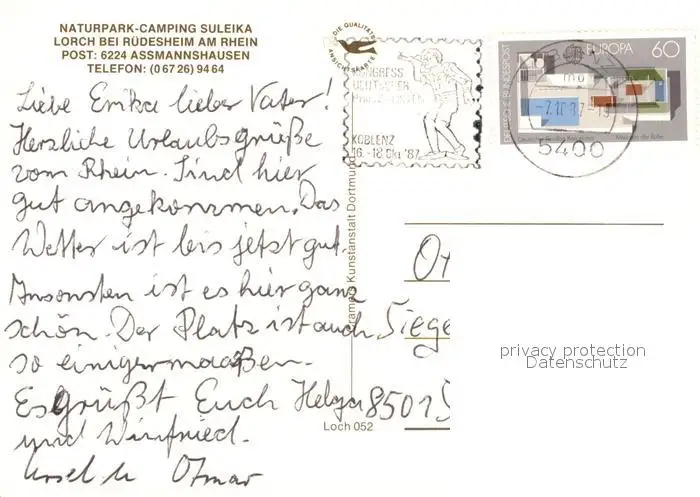 NATURPARK-CAMPING SULEIKA
LORCH BEI RÜDESHEIM AM RHEIN
POST: 6224 ASSMANNSHAUSEN
TELEFON: (0 67 26) 94 64
Liebe Erika lieber Vater!
Herzliche Urlaubsgrüße
vom Rhein. Sind hier
gut angekommen. Das
Wetter ist bis jetzt gut.
Ansonsten ist es hier ganz
schön. Der Platz ist auch
so einigermaaßen.
Es grüßt Euch Helga
und Winfried.
Ursel u Otmar
DIE QUALITÄTS
ANSICHTSKARTE
KONGRESS
DEUTSCHER
KOBLENZ
16.-18 Okt '87
DEUTSCHE BUNDESPOST
EUROPA 60
5400
Kunstanstalt Dortmund
Loch 052
Ot
Siege
8501 S
privacy protection
Datenschutz